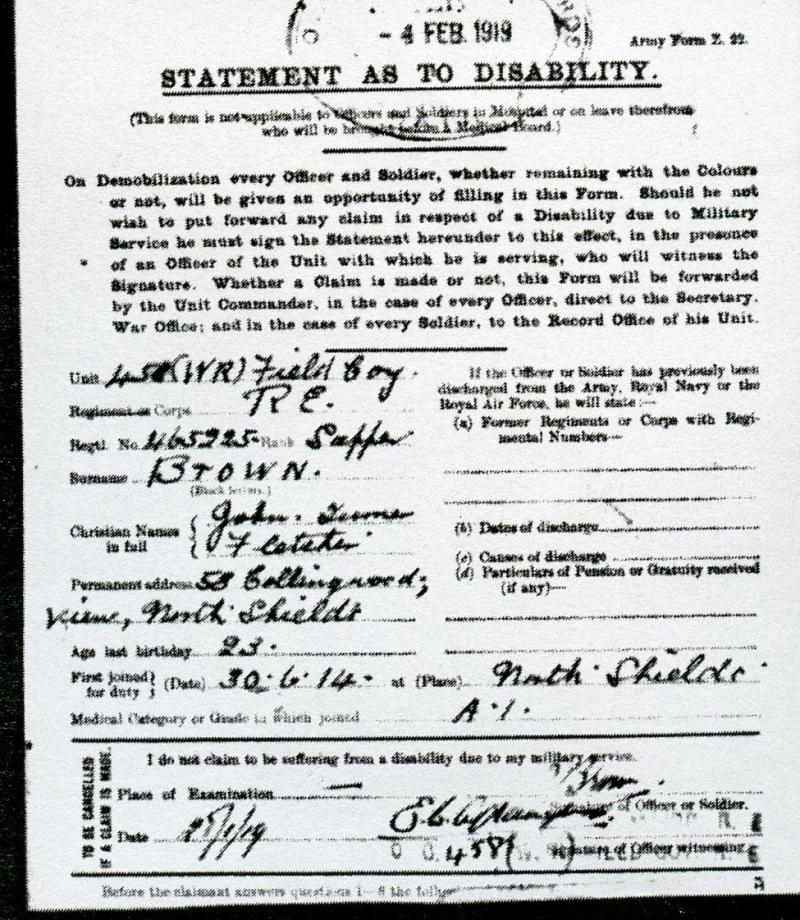 - 4 FEB. 1919
Army Form Z. 22.
STATEMENT AS TO DISABILITY.
(This form is not applicable to Officers and Soldiers in Hospital or on leave therefrom
who will be brought before a Medical Board.)
On Demobilization every Officer and Soldier, whether remaining with the Colours
or not, will be given an opportunity of filling in this Form. Should he not
wish to put forward any claim in respect of a Disability due to Military
Service he must sign the Statement hereunder to this effect, in the presence
of an Officer of the Unit with which he is serving, who will witness the
Signature. Whether a Claim is made or not, this Form will be forwarded
by the Unit Commander, in the case of every Officer, direct to the Secretary,
War Office; and in the case of every Soldier, to the Record Office of his Unit.
Unit 458 (WR) Field Coy.
Regiment or Corps R E.
Regtl. No. 465225 Rank Sapper
Surname BROWN.
(Block letters.)
Christian Names in full { John.
Permanent address 58 Collingwood
View, North Shields
Age last birthday 23.
First joined for duty } (Date) 30.6.14. at (Place) North Shields.
Medical Category or Grade in which joined A.1.
If the Officer or Soldier has previously been
discharged from the Army, Royal Navy or the
Royal Air Force, he will state:—
(a) Former Regiments or Corps with Regi-
mental Numbers—
(b) Dates of discharge
(c) Causes of discharge
(d) Particulars of Pension or Gratuity received
(if any)—
TO BE CANCELLED
IF A CLAIM IS MADE.
I do not claim to be suffering from a disability due to my military service.
Brown.
Place of Examination —
Signature of Officer or Soldier.
Date /1/19
O C. 458 (W. R) FIELD COY R. E
Signature of Officer witnessing.
Before the claimant answers questions 1—8 the